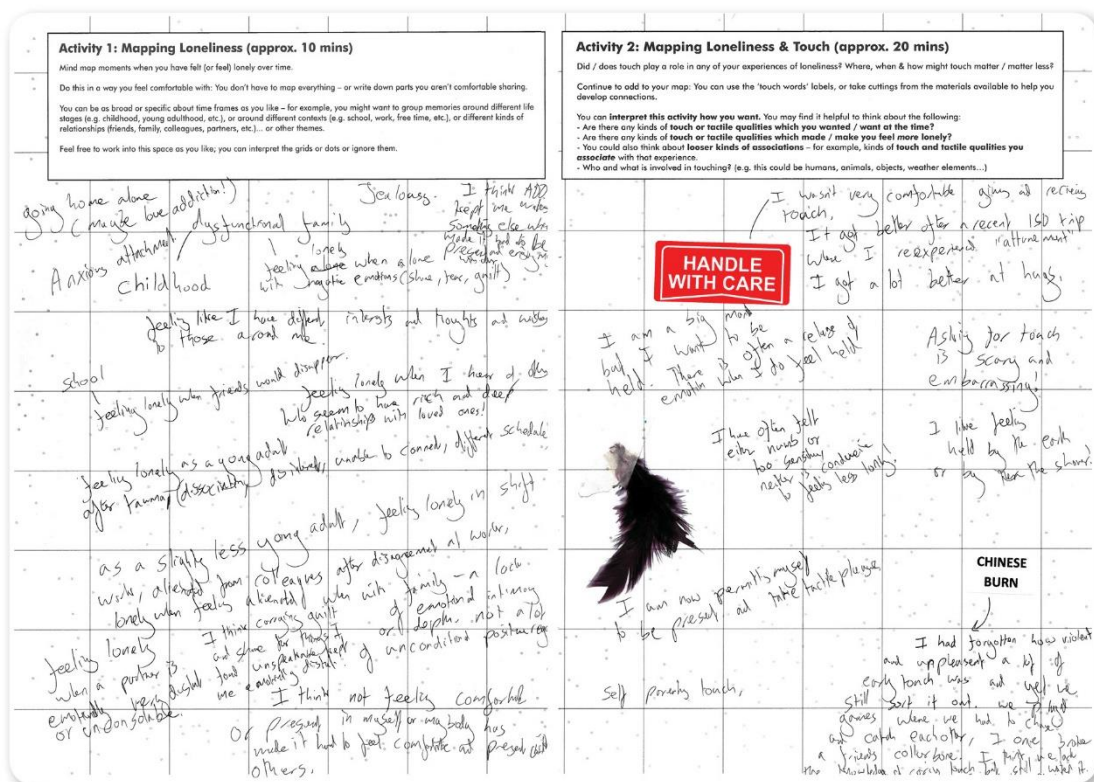 Activity 1: Mapping Loneliness (approx. 10 mins)
Mind map moments when you have felt (or feel) lonely over time.
Do this in a way you feel comfortable with: You don't have to map everything – or write down parts you aren't comfortable sharing.
You can be as broad or specific about time frames as you like – for example, you might want to group memories around different life
stages (e.g. childhood, young adulthood, etc.), or around different contexts (e.g. school, work, free time, etc.), or different kinds of
relationships (friends, family, colleagues, partners, etc.)... or other themes.
Feel free to work into this space as you like; you can interpret the grids or dots or ignore them.
going home alone
(maybe love addiction!)
Jealousy.
I think ADD
kept me
Something else
made it hard to be
present enough
Anxious attachment
dysfunctional family
childhood
lonely
feeling alone when alone
with negative emotions (shame, fear, guilt)
feeling like I have different interests and thoughts and wishes
to those around me
school
feeling lonely when friends would disappear
feeling lonely when I hear of
who seem to have rich and deep
relationships with loved ones!
feeling lonely as a young adult
after trauma, (dissociation) unable to connect, different schedule
as a slightly less young adult, feeling lonely in shift
work, alienated from colleagues after disagreement at work,
lonely when feeling alienated when with family – a lack
of emotional intimacy
or depth, not a lot
of unconditional
feeling lonely
when a partner is
emotionally very distant
or unconsolable
I think carrying guilt
and shame for things I
found unspeakable kept
me emotionally distant.
I think not feeling comfortable
or present in myself or my body has
made it hard to feel comfortable and present with
others.
Activity 2: Mapping Loneliness & Touch (approx. 20 mins)
Did / does touch play a role in any of your experiences of loneliness? Where, when & how might touch matter / matter less?
Continue to add to your map: You can use the 'touch words' labels, or take cuttings from the materials available to help you
develop connections.
You can interpret this activity how you want. You may find it helpful to think about the following:
- Are there any kinds of touch or tactile qualities which you wanted / want at the time?
- Are there any kinds of touch or tactile qualities which made / make you feel more lonely?
- You could also think about looser kinds of associations – for example, kinds of touch and tactile qualities you
associate with that experience.
- Who and what is involved in touching? (e.g. this could be humans, animals, objects, weather elements...)
I wasn't very comfortable giving and receiving
touch,
It got better after a recent LSD trip
where I reexperienced "attunement"
I got a lot better at hugs.
HANDLE
WITH CARE
I am a big man
but I want to be
held. There is often a release of
emotion when I do feel held
Asking for touch
is scary and
embarrassing!
I have often felt
either numb or
too sensitive
neither is conducive
to feeling less lonely!
I like feeling
held by the earth
or by the shower!
I am now permitting myself
to be present and take tactile pleasure
self parenting touch,
CHINESE
BURN
I had forgotten how violent
and unpleasant a lot of
early touch was and yet we
still sort it out. we played
games where we had to chase
and catch eachother, I once broke
a friends collarbone. I think we
touch still